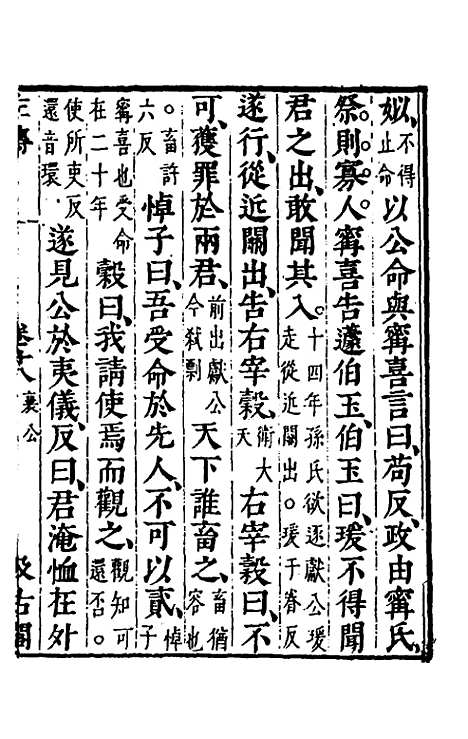 姒、不得止命以公命與甯喜言曰、苟反、政由甯氏、
祭則寡人甯喜告蘧伯玉、伯玉曰、瑗不得聞
君之出、敢聞其入。十四年孫氏欲逐獻公瑗走從近關出。瑗于眷反
遂行、從近關出、告右宰穀、衛大夫右宰穀曰、不
可、獲罪於兩君、前出獻公今弑剽天下誰畜之、畜猶容也
。畜許六反悼子曰、吾受命於先人、不可以貳、悼子
甯喜也受命在二十年穀曰、我請使焉而觀之、觀知可還否。
使所吏反還音環.遂見公於夷儀、反曰、君淹恤在外
卷十八 襄公 汲古閣